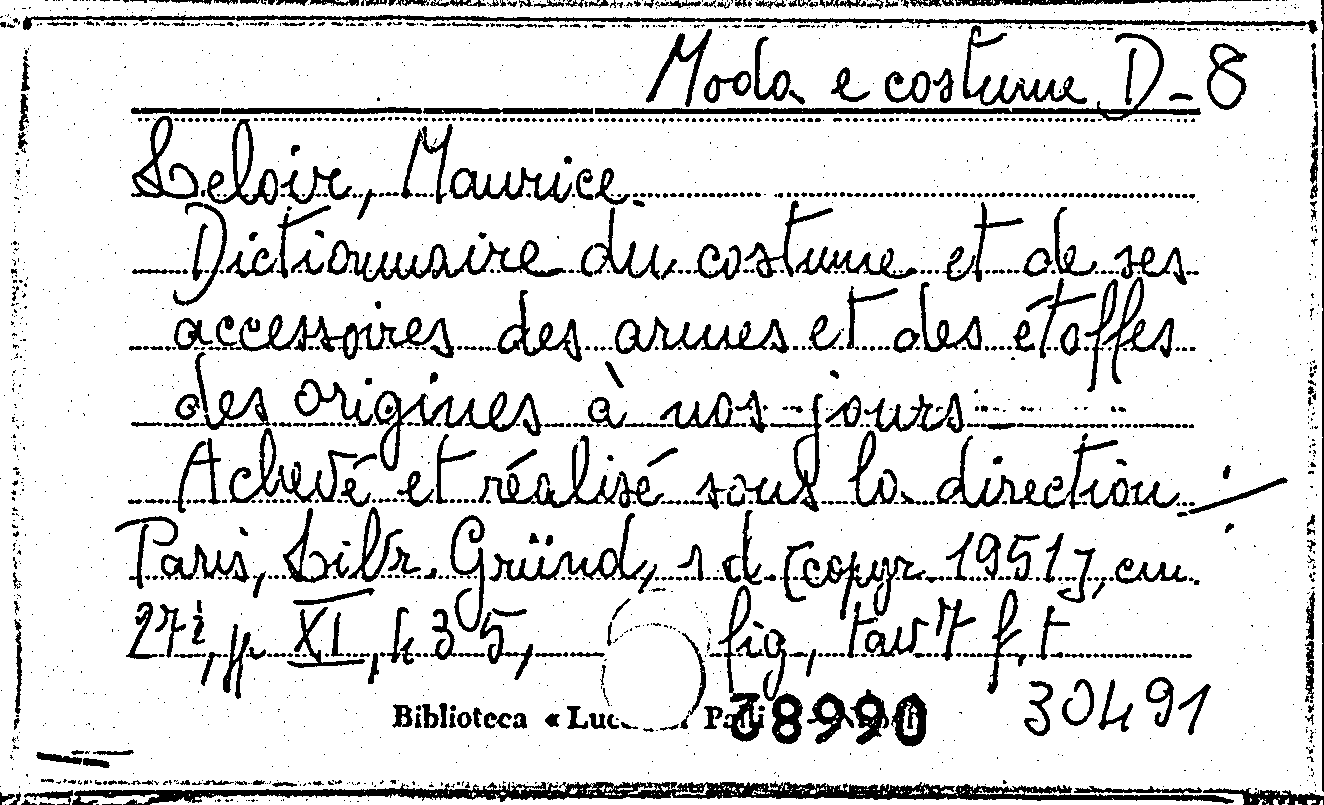 Moda e costume D-8
Leloir, Maurice.
Dictionnaire du costume et de ses
accessoires des armes et des étoffes
des origines à nos jours
Achevé et réalisé sous la direction
Paris, Libr. Gründ, s d. [copyr. 1951], cm.
27½, pp. XI, 435, fig., tav 7 f. t
Biblioteca «
38990
30491